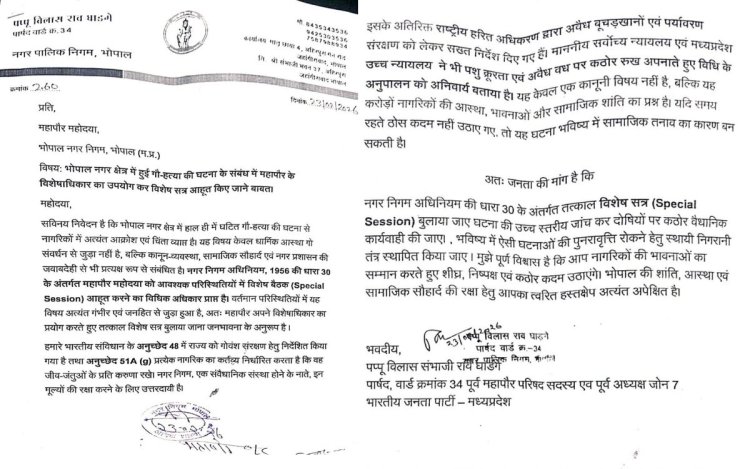 पप्पू विलास राव घाडगे
पार्षद वार्ड क्र. 34
नगर पालिक निगम, भोपाल
मो. 8435343536
9425303536
7587988934
कार्यालय
जहांगीराबाद, भोपाल
नि. श्री संभाजी भवन 27, अहिरपुरा
जहांगीराबाद भोपाल
क्रमांक 260
दिनांक 23/02/2026
प्रति,
महापौर महोदया,
भोपाल नगर निगम, भोपाल (म.प्र.)
विषय: भोपाल नगर क्षेत्र में हुई गौ-हत्या की घटना के संबंध में महापौर के
विशेषाधिकार का उपयोग कर विशेष सत्र आहूत किए जाने बाबत।
महोदया,
सविनय निवेदन है कि भोपाल नगर क्षेत्र में हाल ही में घटित गौ-हत्या की घटना से
नागरिकों में अत्यंत आक्रोश एवं चिंता व्याप्त है। यह विषय केवल धार्मिक आस्था गो
संवर्धन से जुड़ा नहीं है, बल्कि कानून-व्यवस्था, सामाजिक सौहार्द एवं नगर प्रशासन की
जवाबदेही से भी प्रत्यक्ष रूप से संबंधित है। नगर निगम अधिनियम, 1956 की धारा 30
के अंतर्गत महापौर महोदया को आवश्यक परिस्थितियों में विशेष बैठक (Special
Session) आहूत करने का विधिक अधिकार प्राप्त है। वर्तमान परिस्थितियों में यह
विषय अत्यंत गंभीर एवं जनहित से जुड़ा हुआ है, अतः महापौर अपने विशेषाधिकार का
प्रयोग करते हुए तत्काल विशेष सत्र बुलाया जाना जनभावना के अनुरूप है।
हमारे भारतीय संविधान के अनुच्छेद 48 में राज्य को गोवंश संरक्षण हेतु निर्देशित किया
गया है तथा अनुच्छेद 51A (g) प्रत्येक नागरिक का कर्तव्य निर्धारित करता है कि वह
जीव-जंतुओं के प्रति करुणा रखे। नगर निगम, एक संवैधानिक संस्था होने के नाते, इन
मूल्यों की रक्षा करने के लिए उत्तरदायी है।
इसके अतिरिक्त राष्ट्रीय हरित अधिकरण द्वारा अवैध बूचड़खानों एवं पर्यावरण
संरक्षण को लेकर सख्त निर्देश दिए गए हैं। माननीय सर्वोच्च न्यायालय एवं मध्यप्रदेश
उच्च न्यायालय ने भी पशु क्रूरता एवं अवैध वध पर कठोर रुख अपनाते हुए विधि के
अनुपालन को अनिवार्य बताया है। यह केवल एक कानूनी विषय नहीं है, बल्कि यह
करोड़ों नागरिकों की आस्था, भावनाओं और सामाजिक शांति का प्रश्न है। यदि समय
रहते ठोस कदम नहीं उठाए गए, तो यह घटना भविष्य में सामाजिक तनाव का कारण बन
सकती है।
अतः जनता की मांग है कि
नगर निगम अधिनियम की धारा 30 के अंतर्गत तत्काल विशेष सत्र (Special
Session) बुलाया जाए घटना की उच्च स्तरीय जांच कर दोषियों पर कठोर वैधानिक
कार्यवाही की जाए। , भविष्य में ऐसी घटनाओं की पुनरावृत्ति रोकने हेतु स्थायी निगरानी
तंत्र स्थापित किया जाए । मुझे पूर्ण विश्वास है कि आप नागरिकों की भावनाओं का
सम्मान करते हुए शीघ्र, निष्पक्ष एवं कठोर कदम उठाएंगे। भोपाल की शांति, आस्था एवं
सामाजिक सौहार्द की रक्षा हेतु आपका त्वरित हस्तक्षेप अत्यंत अपेक्षित है।
पप्पू विलास राव घाडगे
पार्षद वार्ड क्र.-34
नगर पालिक निगम, भोपाल
भवदीय,
पप्पू विलास संभाजी राव घाडगे
पार्षद, वार्ड क्रमांक 34 पूर्व महापौर परिषद सदस्य एव पूर्व अध्यक्ष जोन 7
भारतीय जनता पार्टी – मध्यप्रदेश